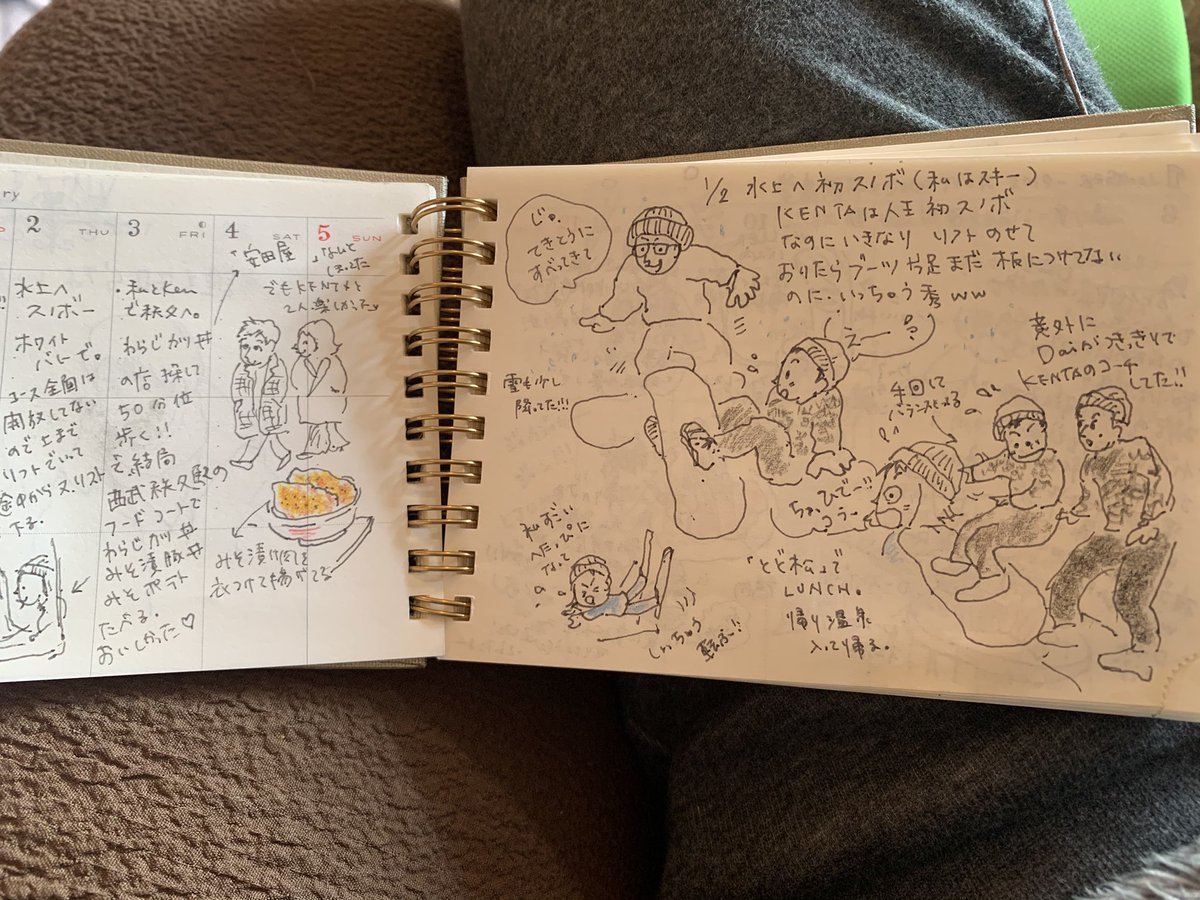 2
THU
3
FRI
4
SAT
5
SUN
水上へ
スノボー
ホワイト
バレーで。
コース全面は
開放してない
ので上まで
リフトでいて
途中からヌ、リフト
下る。
・私とKen
で秩父へ。
わらじカツ丼
の店 探して
50分位
歩く!!
え、結局
西武秩父駅の
フードコートで
わらじカツ丼
みそ漬豚丼
みそポテト
たべる。
おいしかった♡
「安田屋」なんと
でもKENTAと
2人楽しかった
みそ漬け肉を
衣つけて揚げてる
1/2 水上へ初スノボ(私はスキー)
KENTAは人生初スノボ
なのにいきなり リフトのせて
おりたらブーツや足まだ板につけてない
のに、いっちゃう秀ww
じゃ、
てきとうに
すべってきて
えー!?
雪も少し
降ってた!!!
意外に
Daiがつきっきりで
KENTAのコーチ
してた!!
手回して
バランスとる
ちょ、ひでー!!
コラー
私ずーっと
しょっちゅう
転ぶー!!
「とど松」で
LUNCH。
帰り温泉
入って帰る。